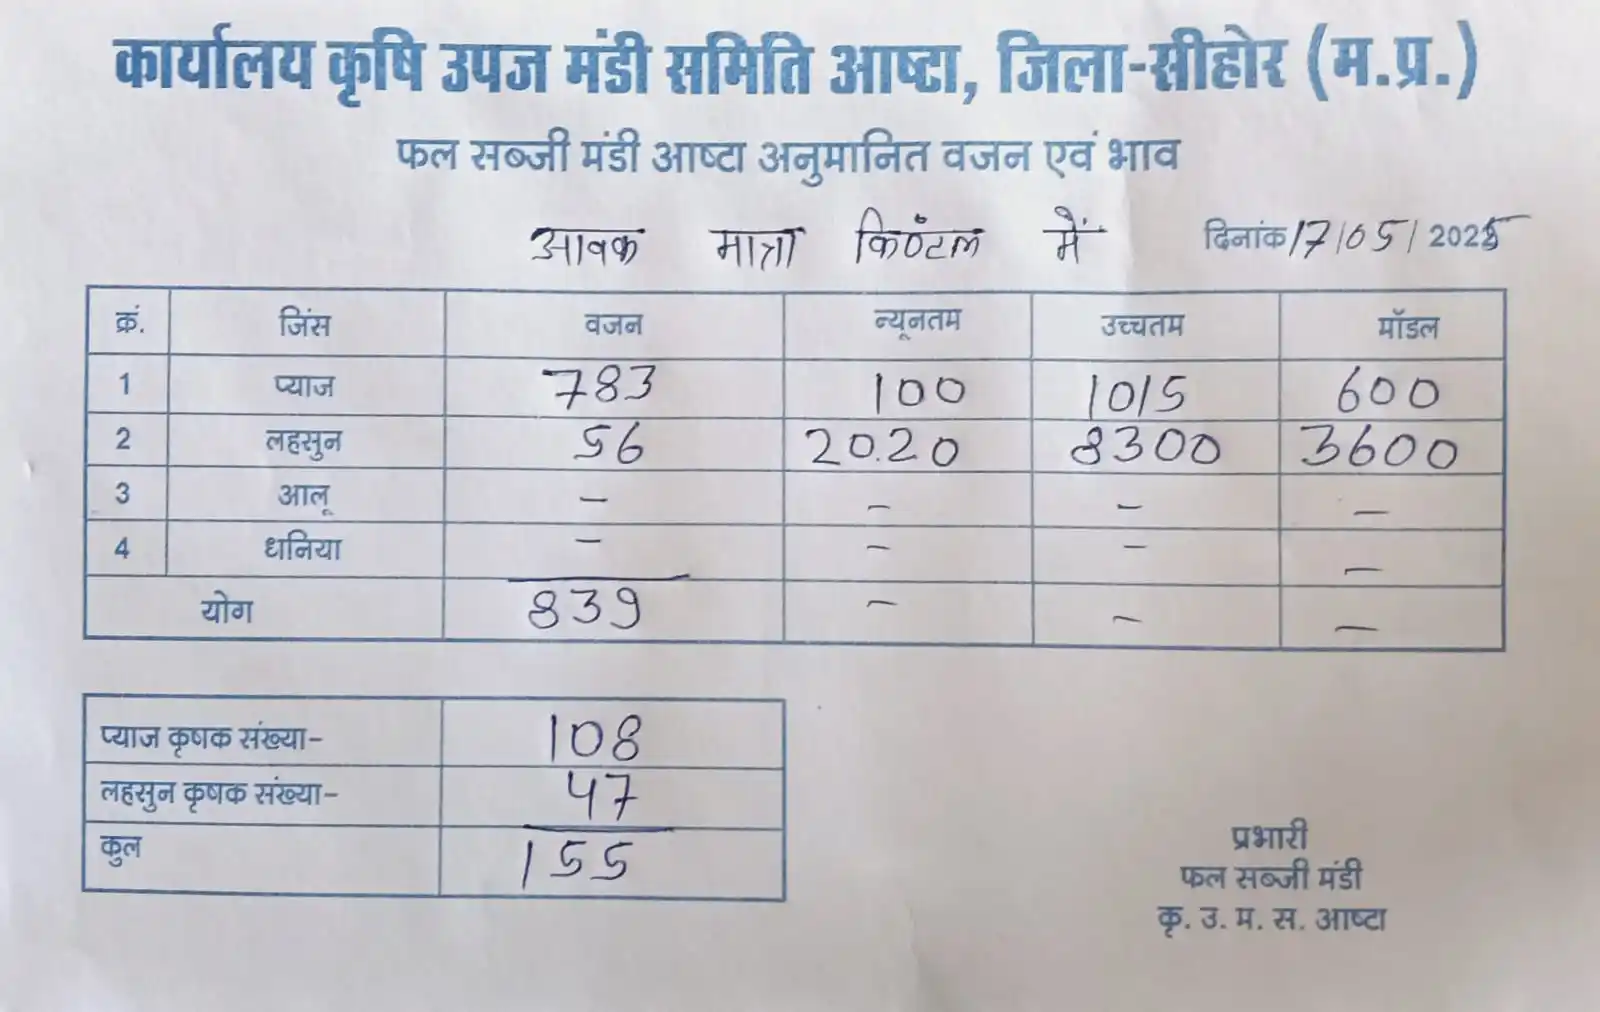 कार्यालय कृषि उपज मंडी समिति आष्टा, जिला-सीहोर (म.प्र.)
फल सब्जी मंडी आष्टा अनुमानित वजन एवं भाव
आवक मात्रा क्विंटल में दिनांक 17/05/2025
क्रं. जिंस वजन न्यूनतम उच्चतम मॉडल
1 प्याज 783 100 1015 600
2 लहसुन 56 2020 8300 3600
3 आलू - - - -
4 धनिया - - - -
योग 839 - - -
प्याज कृषक संख्या- 108
लहसुन कृषक संख्या- 47
कुल 155
प्रभारी
फल सब्जी मंडी
कृ. उ. म. स. आष्टा